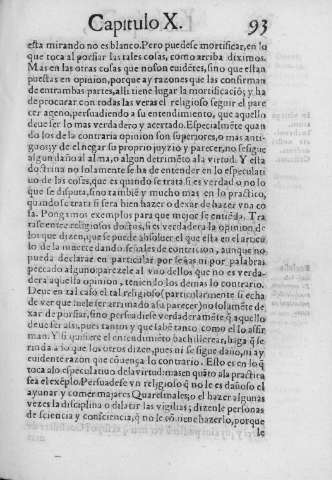 Capitulo X. 93
esta mirando no es blanco. Pero puedese mortificar, en lo
que toca al porfiar las tales cosas, como arriba diximos.
Mas en las otras cosas que no son euidētes, sino que estan
puestas en opinion, porque ay razones que las confirman
de entrambas partes, alli tiene lugar la mortificaciō; y ha
de procurar con todas las veras el religioso seguir el pare
cer ageno, persuadiendo a su entendimiento, que aquello
deue ser lo mas verdadero y acertado. Especialmēte quan
do los de la contraria opinion son superiores, o mas anti-
guos: y de el negar su proprio juyzio y parecer, no se sigue
algun daño al alma, o algun detrimēto a la virtud. Y esta
doctrina no solamente se ha de entender en lo especulati
uo de las cosas, que es quando se trata si es verdad o no lo
que se disputa, sino tambiē y mucho mas en lo practico,
quando se trata si sera bien hazer o dexar de hazer vna co
sa. Pongamos exemplos para que mejor se entiēda. Tra
tase entre religiosos doctos, si es verdadera la opinion, de
los que dizen, que se puede absoluer, el que esta en el articu
lo de la muerte dando señales de contricion, aunque no
pueda declarar en particular por señas ni por palabras
peccado alguno: parezele al vno dellos que no es verda-
dera aquella opinion, teniendo los demas lo contrario.
Deue en tal caso el tal religioso (particularmente si echa
de ver que suele ser arrimado a su parecer) no solamēte de
xar de porfiar, sino persuadirse verdaderamēte q̃ aquello
deue ser assi, pues tantos y que sabē tanto como el lo affir
man. Y si quisiere el entendimiēto bachillerear, haga q̃ se
rinda a lo que los otros dizen, pues ni se sigue daño, ni ay
euidente razon que cōuença lo contrario. Esto es en lo q̃
toca alo especulatiuo de la virtud: mas en quāto ala practica
sea el exēplo. Persuadese vn religioso q̃ no le es dañoso el
ayunar y comer majares Quaresmales, o el hazer algunas
vezes la disciplina o dilatar las vigilias; dizenle personas
de sciencia y consciencia, q̃ no le cōuiene hazerlo, porque
le